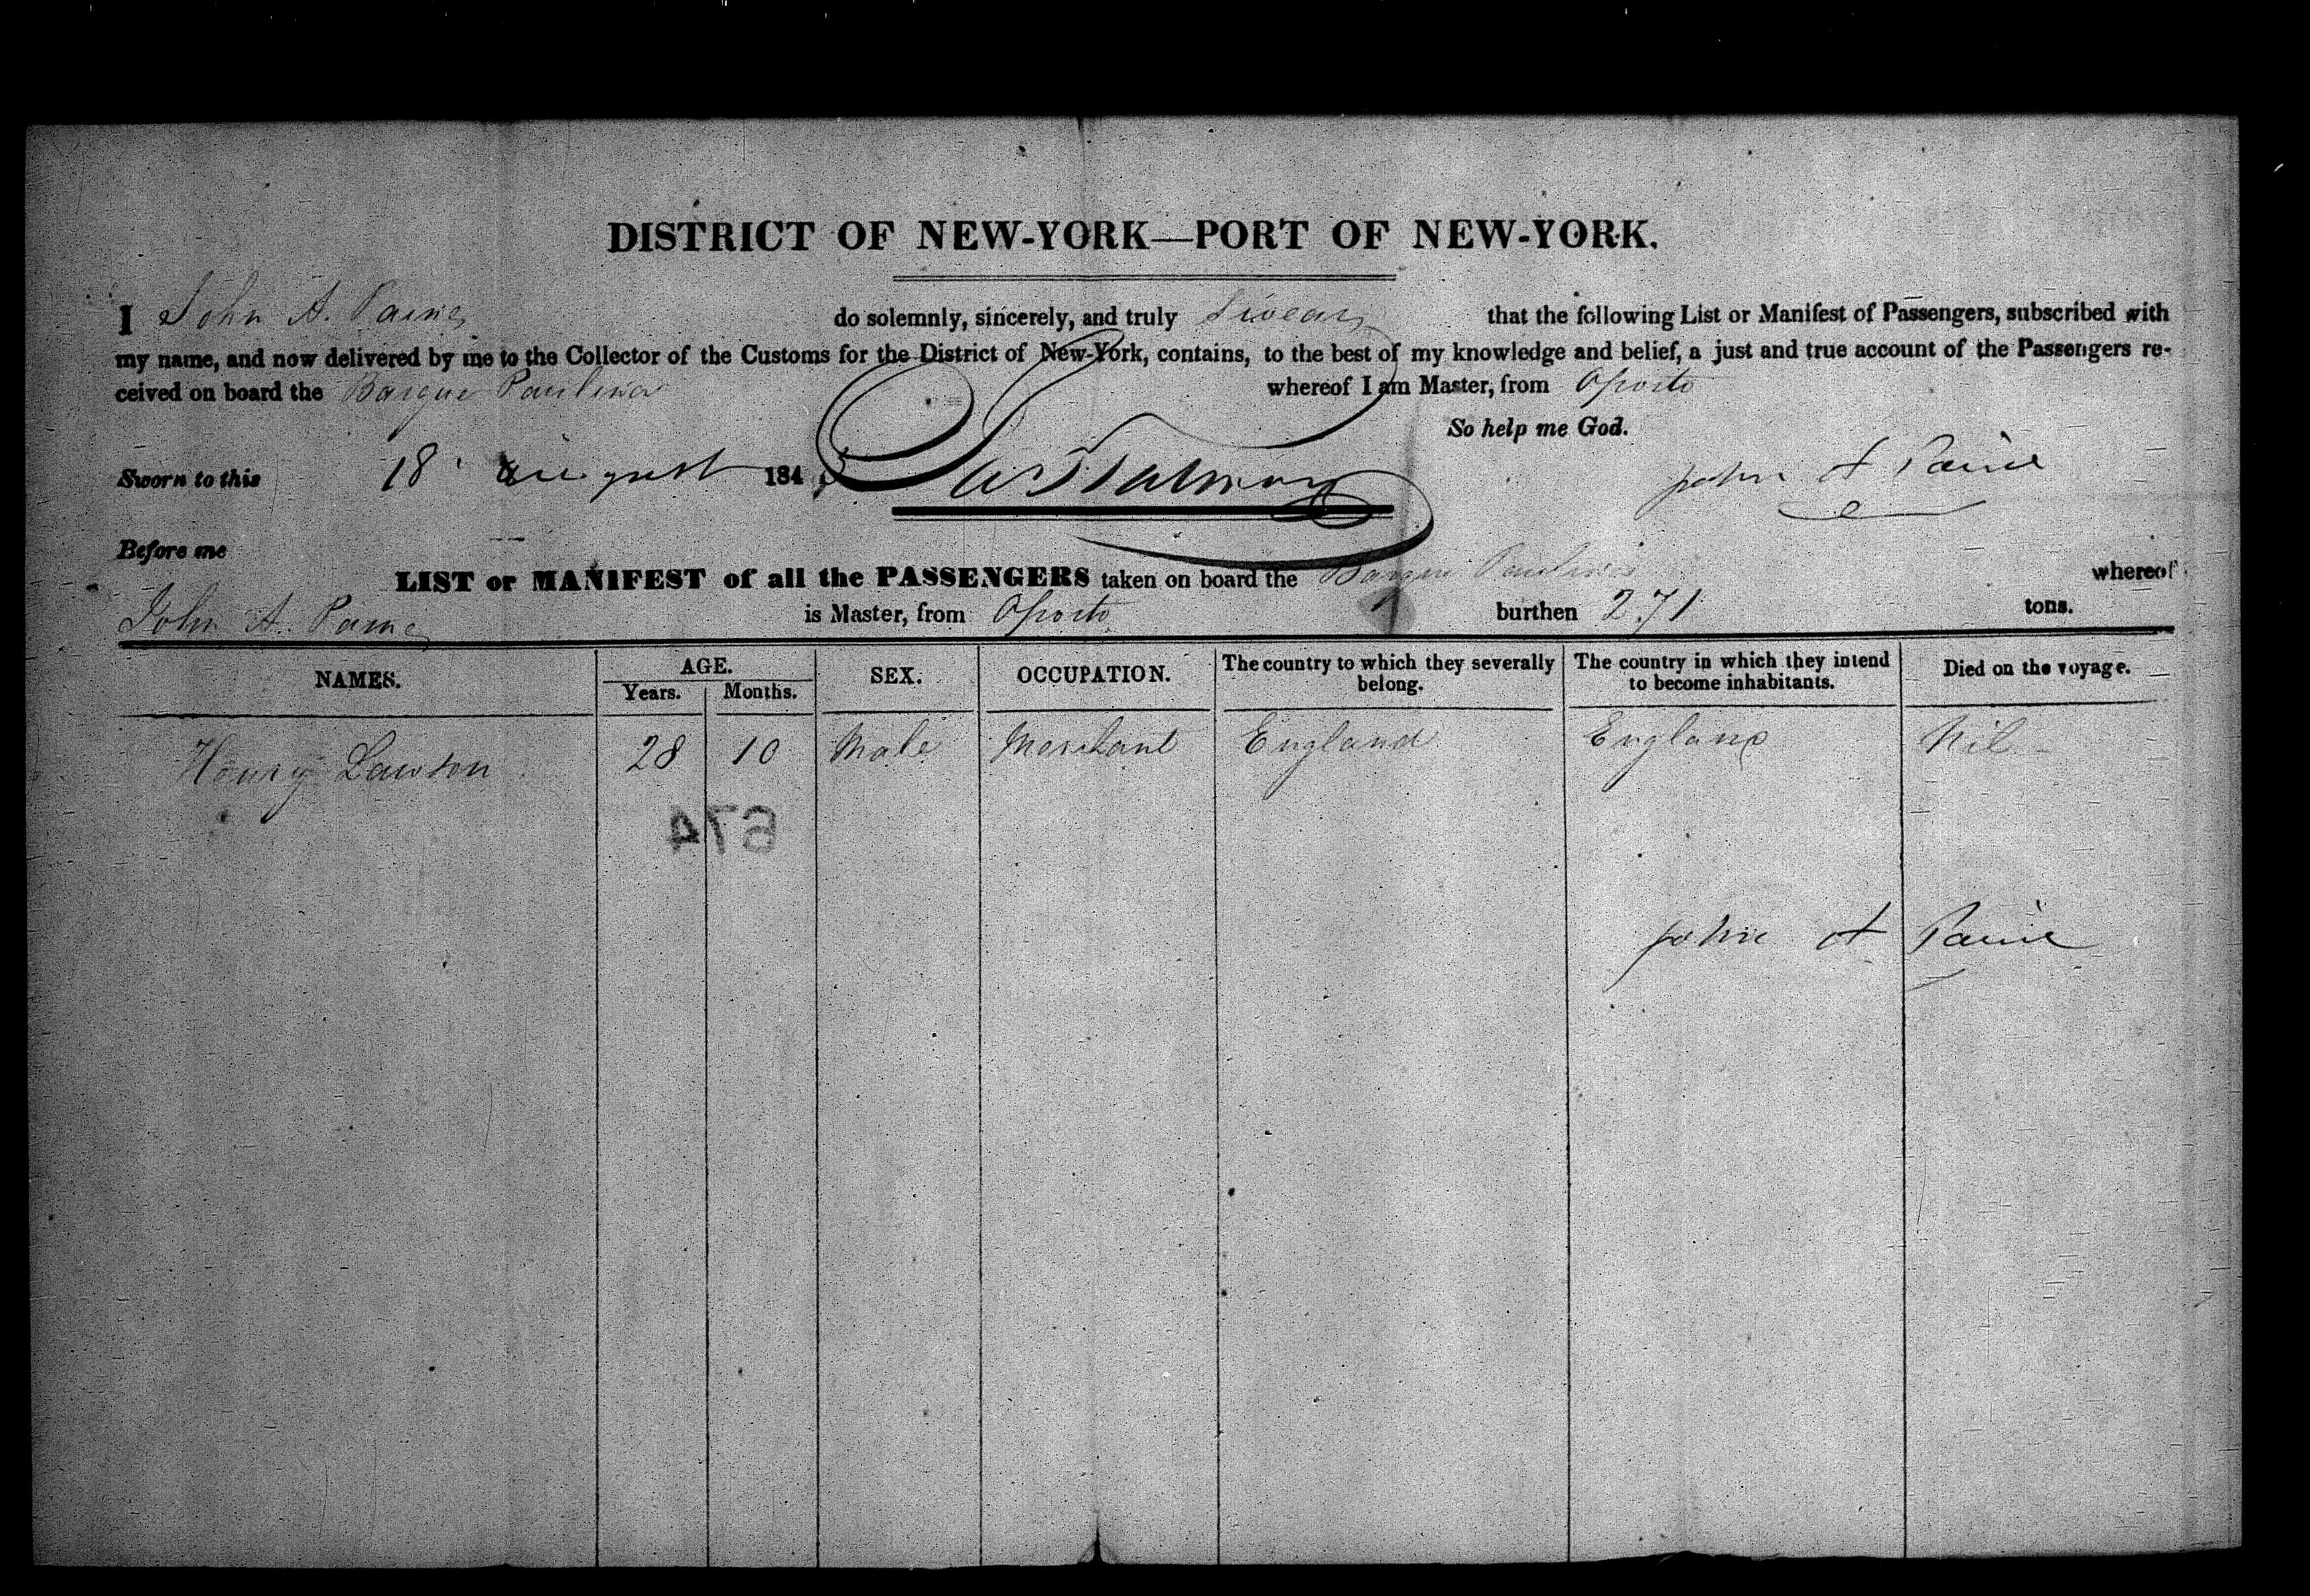 DISTRICT OF NEW-YORK—PORT OF NEW-YORK.
I John A. Paine do solemnly, sincerely, and truly Swear that the following List or Manifest of Passengers, subscribed with
my name, and now delivered by me to the Collector of the Customs for the District of New-York, contains, to the best of my knowledge and belief, a just and true account of the Passengers re-
ceived on board the Barque Paulina whereof I am Master, from Oporto
So help me God.
Sworn to this 18 august 184 John A Paine
Before me
LIST or MANIFEST of all the PASSENGERS taken on board the Barque Paulina whereof
John A. Paine is Master, from Oporto burthen 271 tons.
NAMES. AGE. SEX. OCCUPATION. The country to which they severally belong. The country in which they intend to become inhabitants. Died on the voyage.
Years. Months.
Henry Lawson 28 10 Male Merchant England England Nil
674
John A Paine